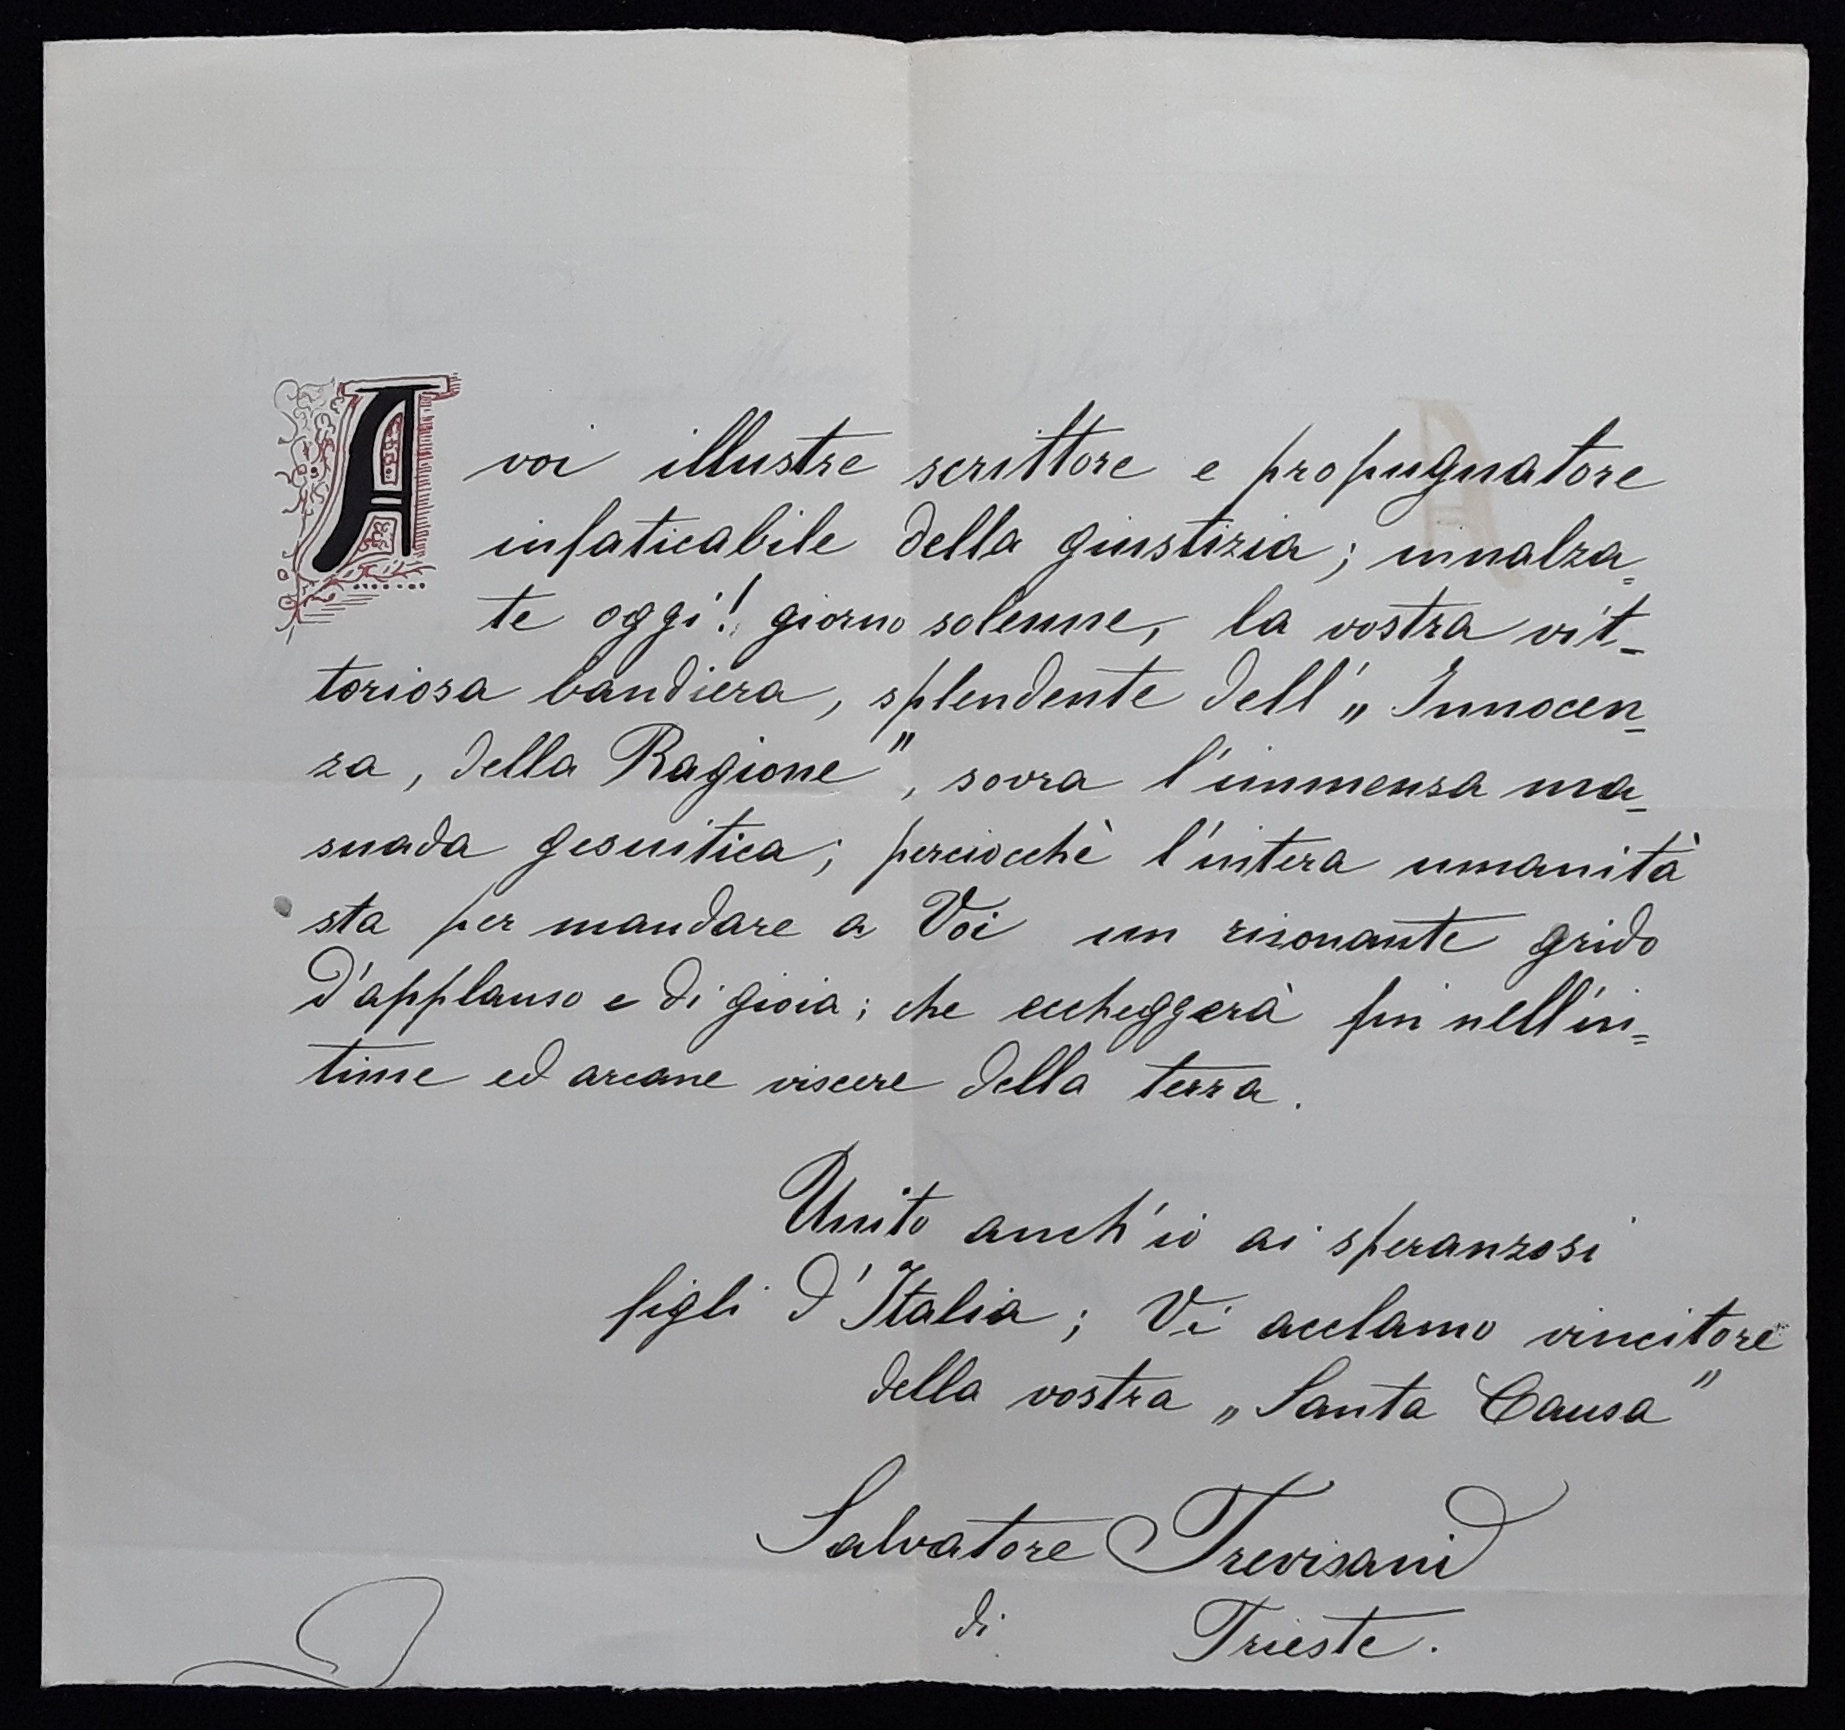 A voi illustre scrittore e propugnatore
infaticabile della giustizia; innalza=
te oggi! giorno solenne, la vostra vit-
toriosa bandiera, splendente dell' „Innocen-
za, della Ragione", sovra l'immensa ma-
snada gesuitica; perciocchè l'intera umanità
sta per mandare a Voi un risonante grido
d'applauso e di gioia; che eccheggerà fin nell'in=
time ed arcane viscere della terra.
Unito anch'io ai speranzosi
figli d'Italia; Vi acclamo vincitore
della vostra „Santa Causa"
Salvatore Trevisani
di Trieste.